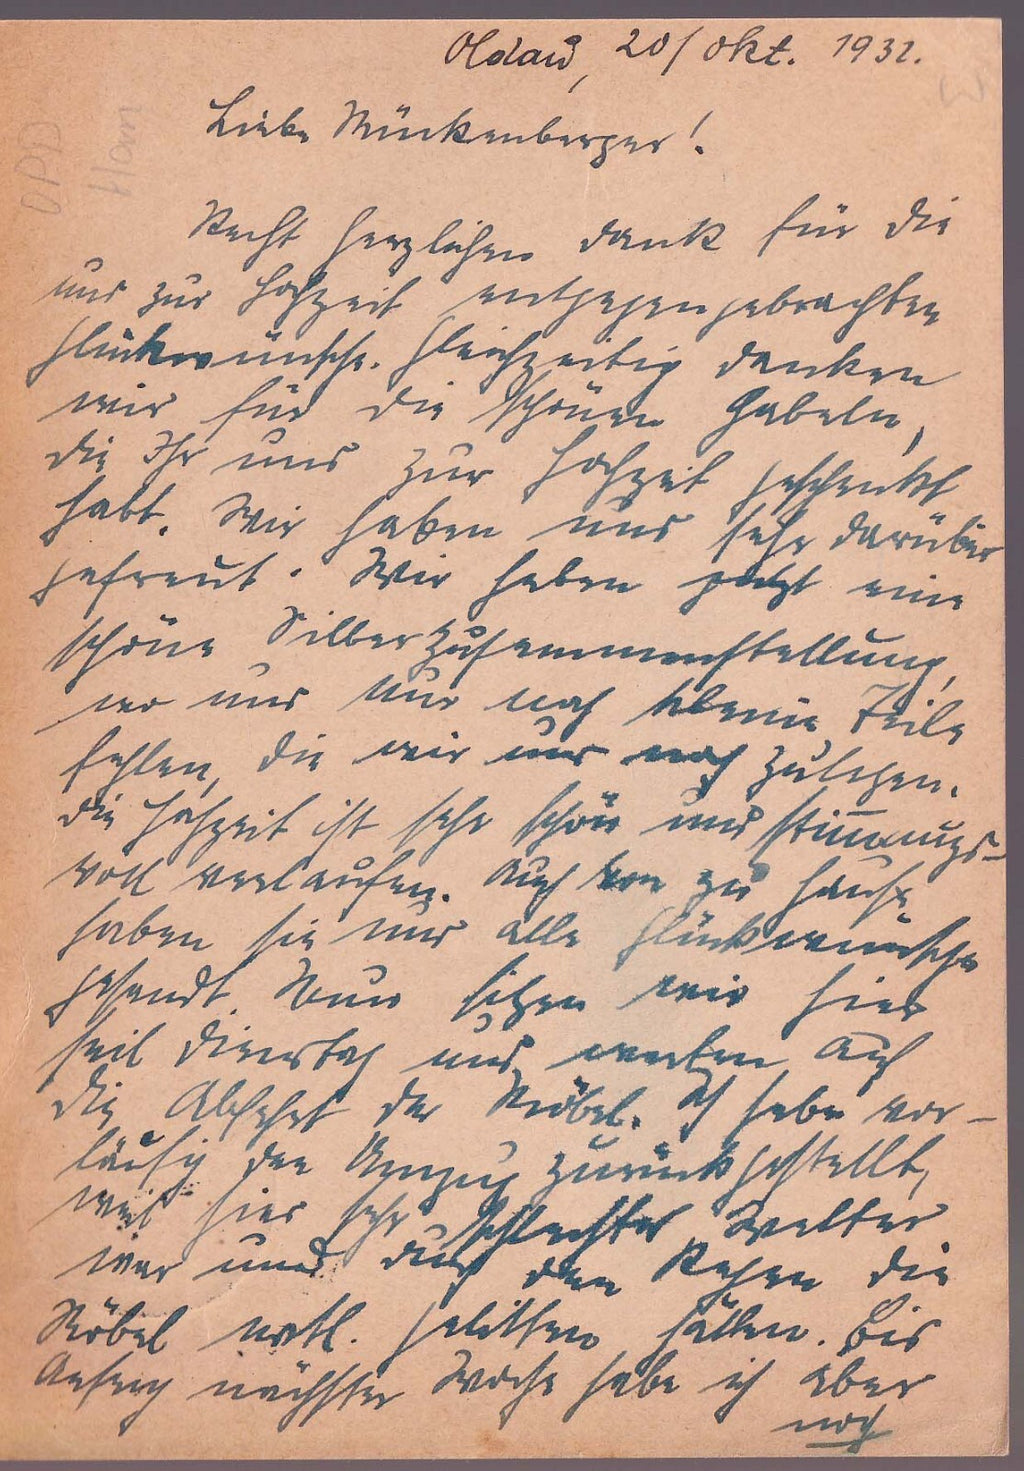 Oldau, 20/Okt. 1932.
Liebe Mückenberger!
Recht herzlichen Dank für die
uns zur Hochzeit entgegengebrachten
Glückwünsche. Gleichzeitig danken
wir für die schönen Gabeln,
die Ihr uns zur Hochzeit geschenkt
habt. Wir haben uns sehr darüber
gefreut. Wir haben jetzt eine
schöne Silberzusammenstellung,
wo uns nur noch kleine Teile
fehlen, die wir uns noch zulegen.
Die Hochzeit ist sehr schön und stimmungs-
voll verlaufen. Auch von zu Hause
haben sie uns alle Glückwünsche
gesandt. Nun sitzen wir hier
seit Dienstag und warten auf
die Abfahrt der Möbel. Ich habe vor-
läufig den Umzug zurückgestellt,
weil hier sehr schlechtes Wetter
war und durch den Regen die
Möbel evtl. gelitten hätten. Bis
Anfang nächster Woche habe ich aber
noch
OPD
Ham
W